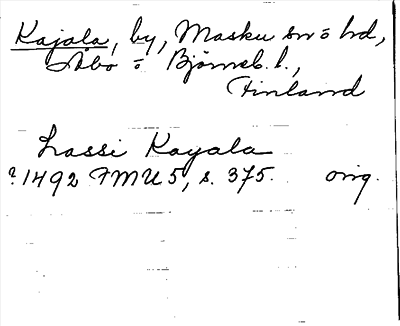 Kajala, by, Masku sn o hd,
Åbo o Björneb. l.,
Finland
Lassi Kayala
?1492 FMU 5, s. 375. orig.